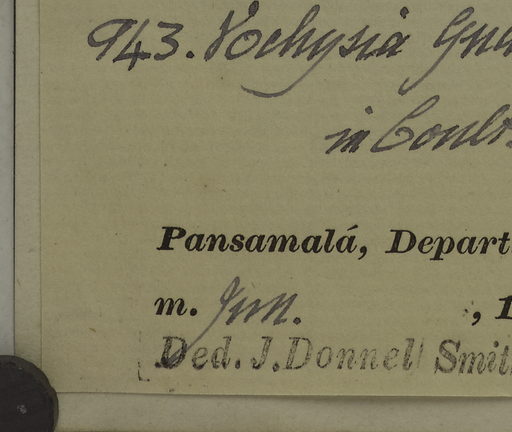 943. Vochysia Gua
in Coult.
Pansamalá, Depart
m. Jun. , 1
Ded. J. Donnell Smit